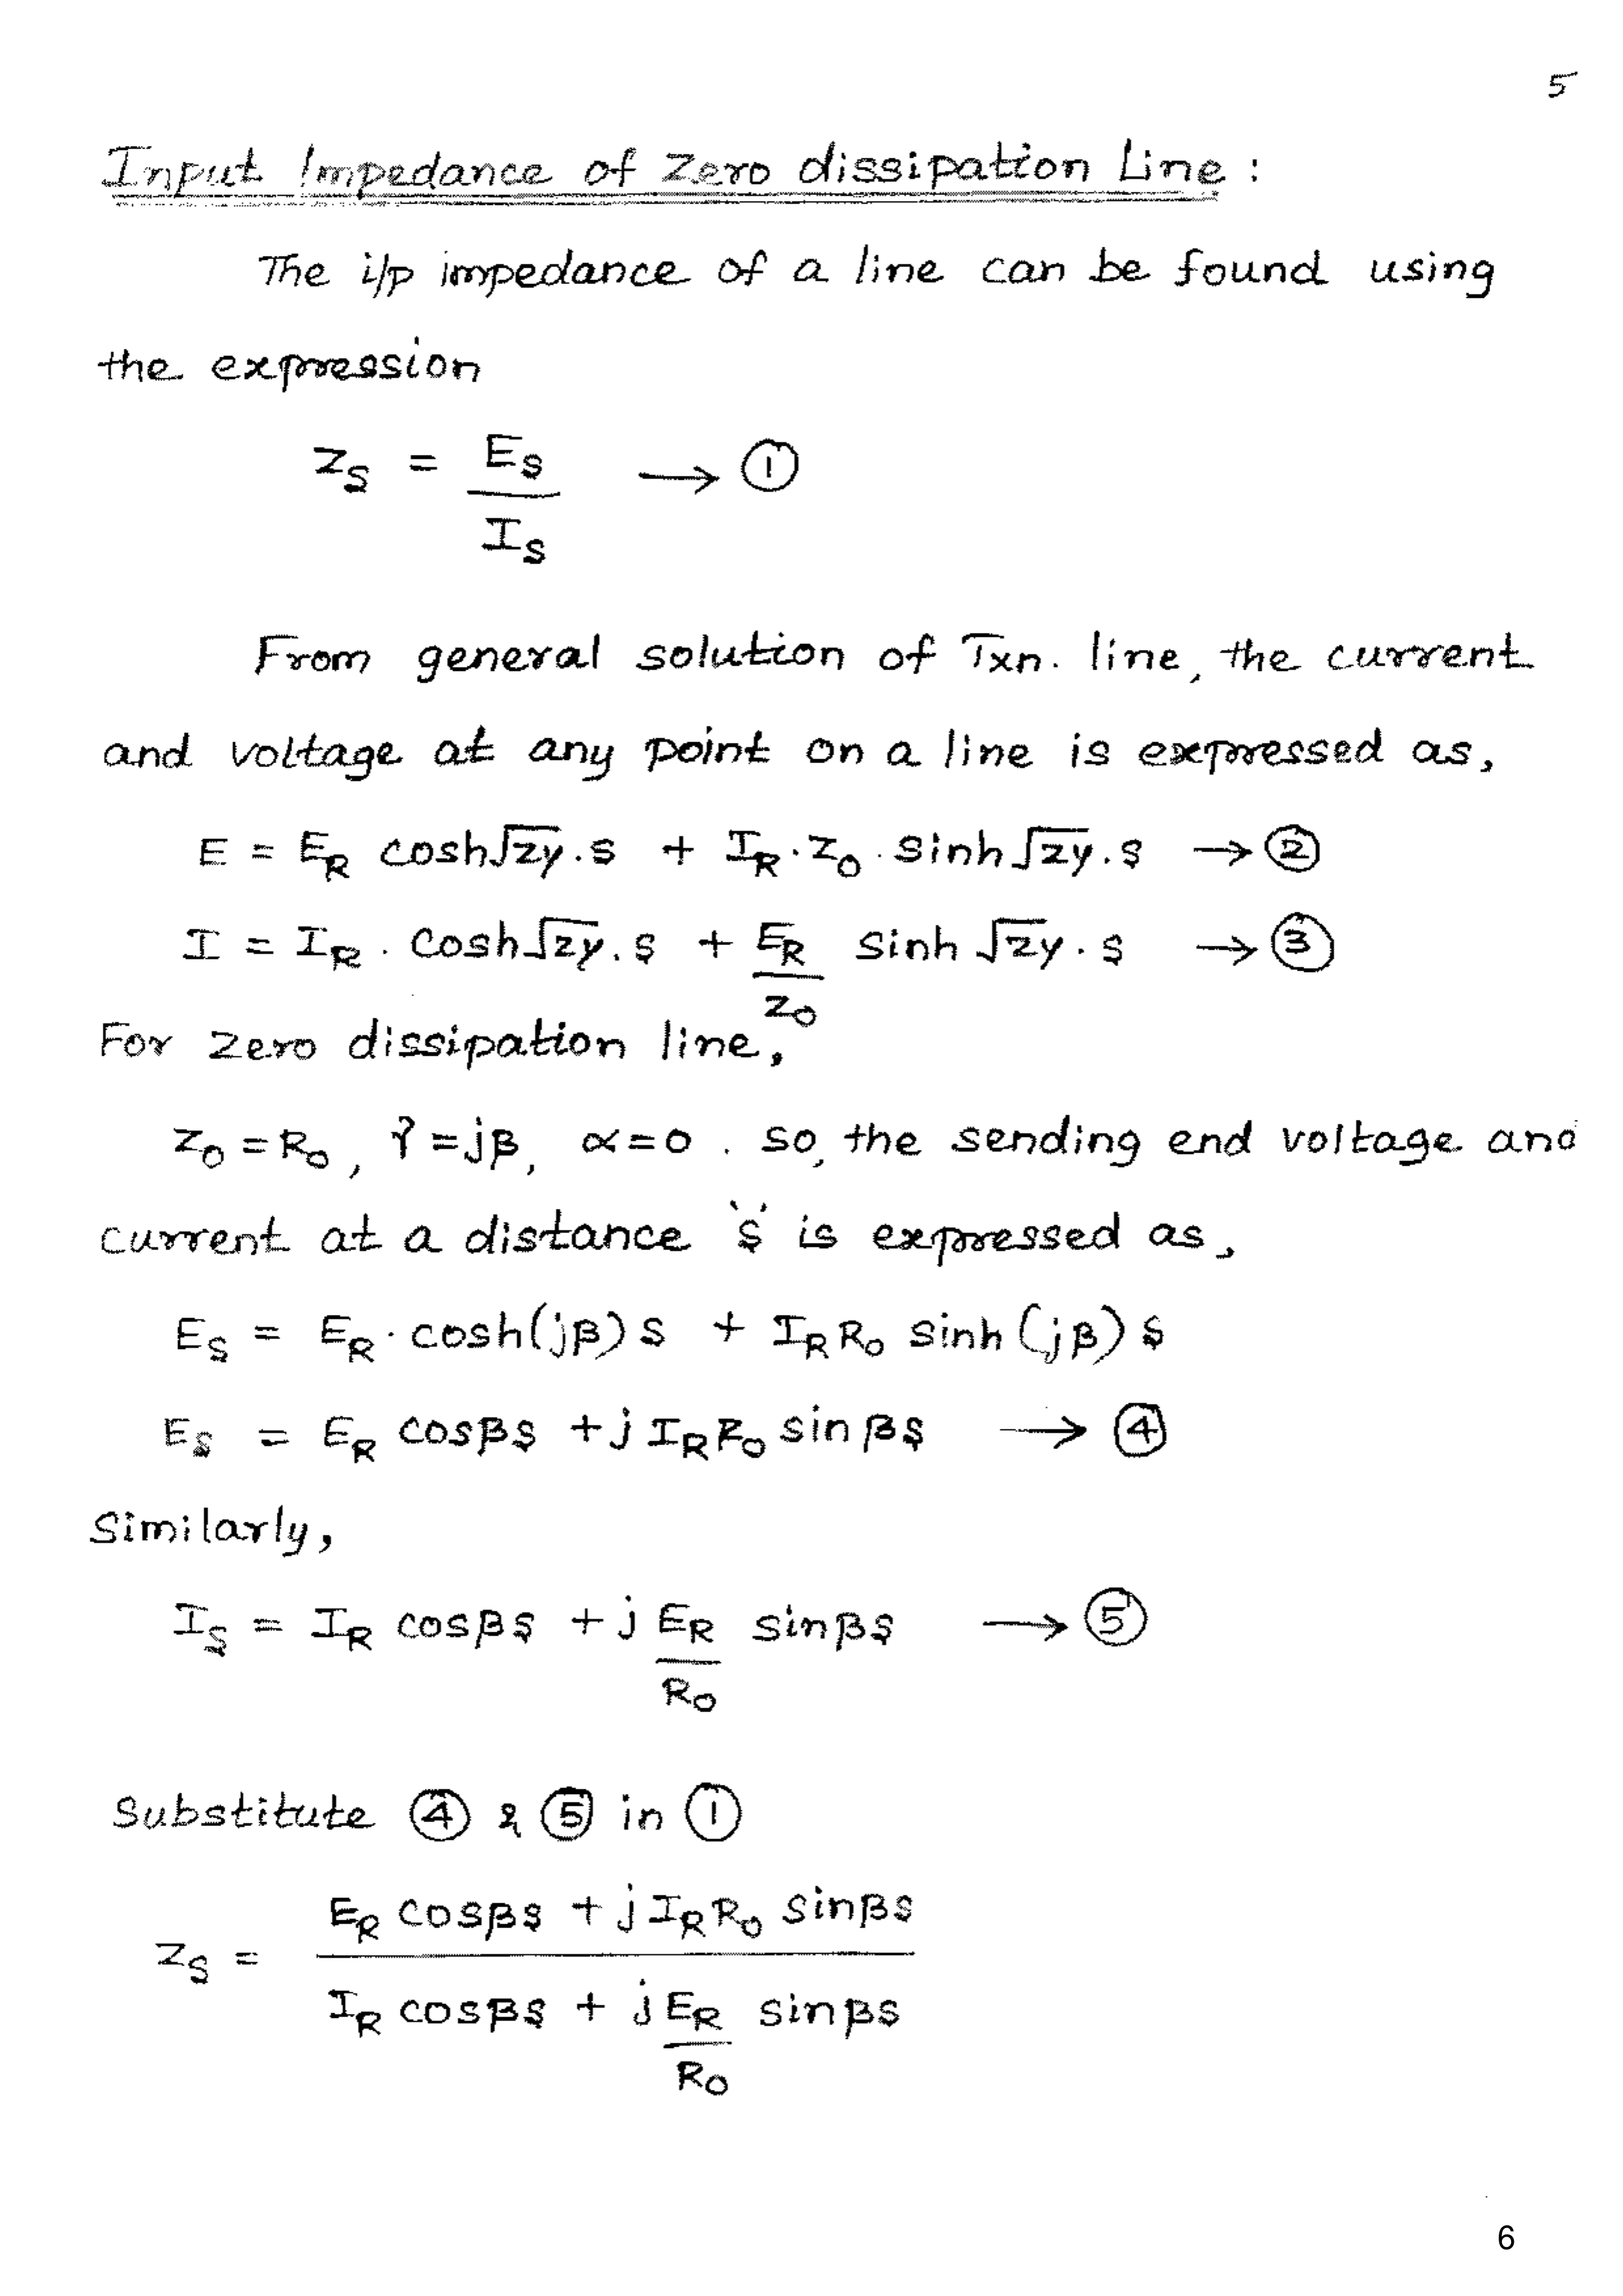 5
Input Impedance of Zero dissipation Line :
The i/p impedance of a line can be found using
the expression
Z_S = E_S / I_S → ①
From general solution of Txn. line, the current
and voltage at any point on a line is expressed as,
E = E_R cosh√zy.s + I_R.Z_0.sinh√zy.s → ②
I = I_R . Cosh√zy.s + E_R/Z_0 sinh √zy.s → ③
For zero dissipation line,
Z_0 = R_0, γ = jβ, α = 0 . so, the sending end voltage and
current at a distance 's' is expressed as,
E_S = E_R . cosh(jβ)s + I_R R_0 sinh(jβ)s
E_S = E_R cosβs + j I_R R_0 sinβs → ④
Similarly,
I_S = I_R cosβs + j E_R/R_0 sinβs → ⑤
Substitute ④ & ⑤ in ①
Z_S = (E_R cosβs + j I_R R_0 sinβs) / (I_R cosβs + j E_R/R_0 sinβs)
6